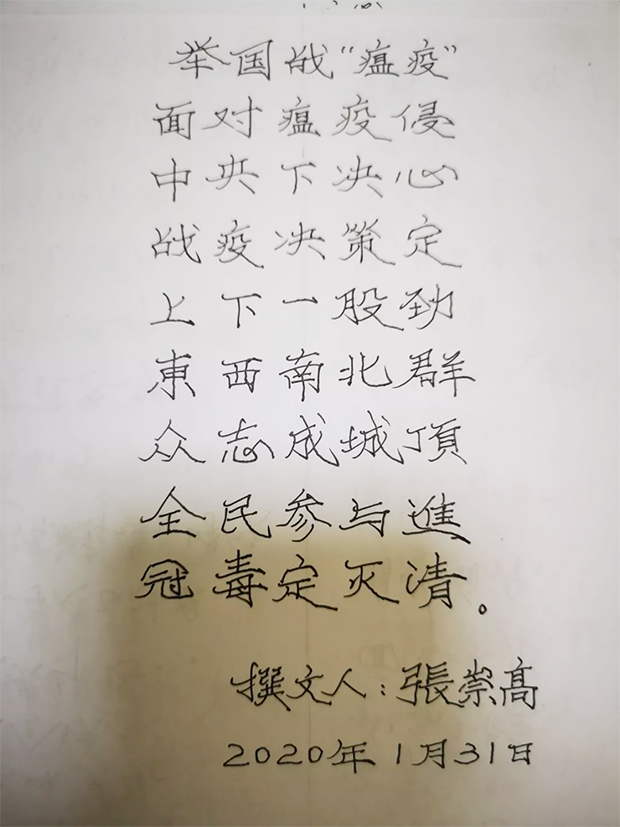 举国战“瘟疫”
面对瘟疫侵
中央下决心
战疫决策定
上下一股劲
東西南北群
众志成城頂
全民参与進
冠毒定灭清。
撰文人:張崇髙
2020年1月31日